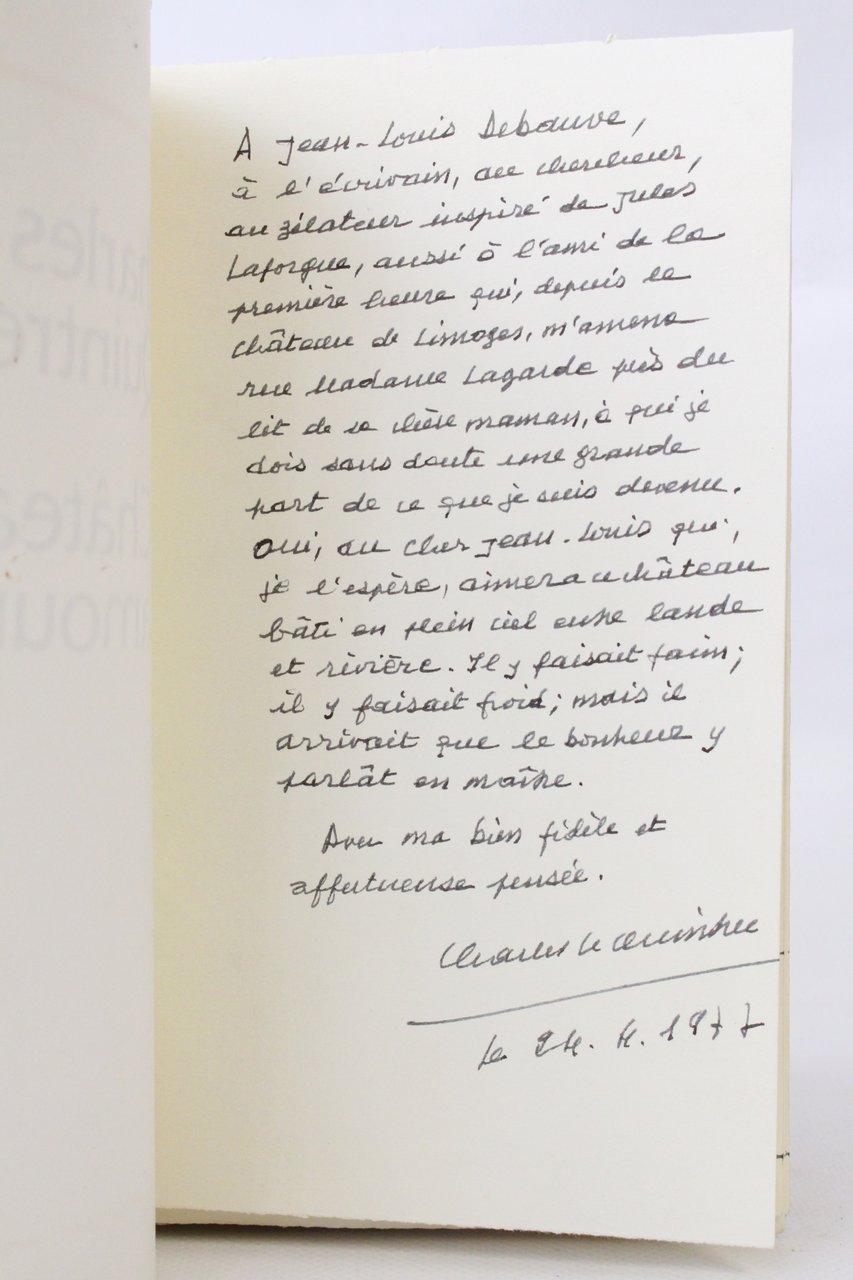 A Jean-Louis Debauve,
à l'écrivain, au chercheur,
au zélateur inspiré de Jules
Laforgue, aussi à l'ami de la
première heure qui, depuis le
château de Limoges, m'amena
rue Madame Lagarde près du
lit de sa chère maman, à qui je
dois sans doute une grande
part de ce que je suis devenu.
Oui, au cher Jean-Louis qui,
je l'espère, aimera ce château
bâti en plein ciel entre lande
et rivière. Il y faisait faim ;
il y faisait froid ; mais il
arrivait que le bonheur y
parlât en maître.
Avec ma bien fidèle et
affectueuse pensée.
Charles Le Quintrec
le 24. 4. 1977